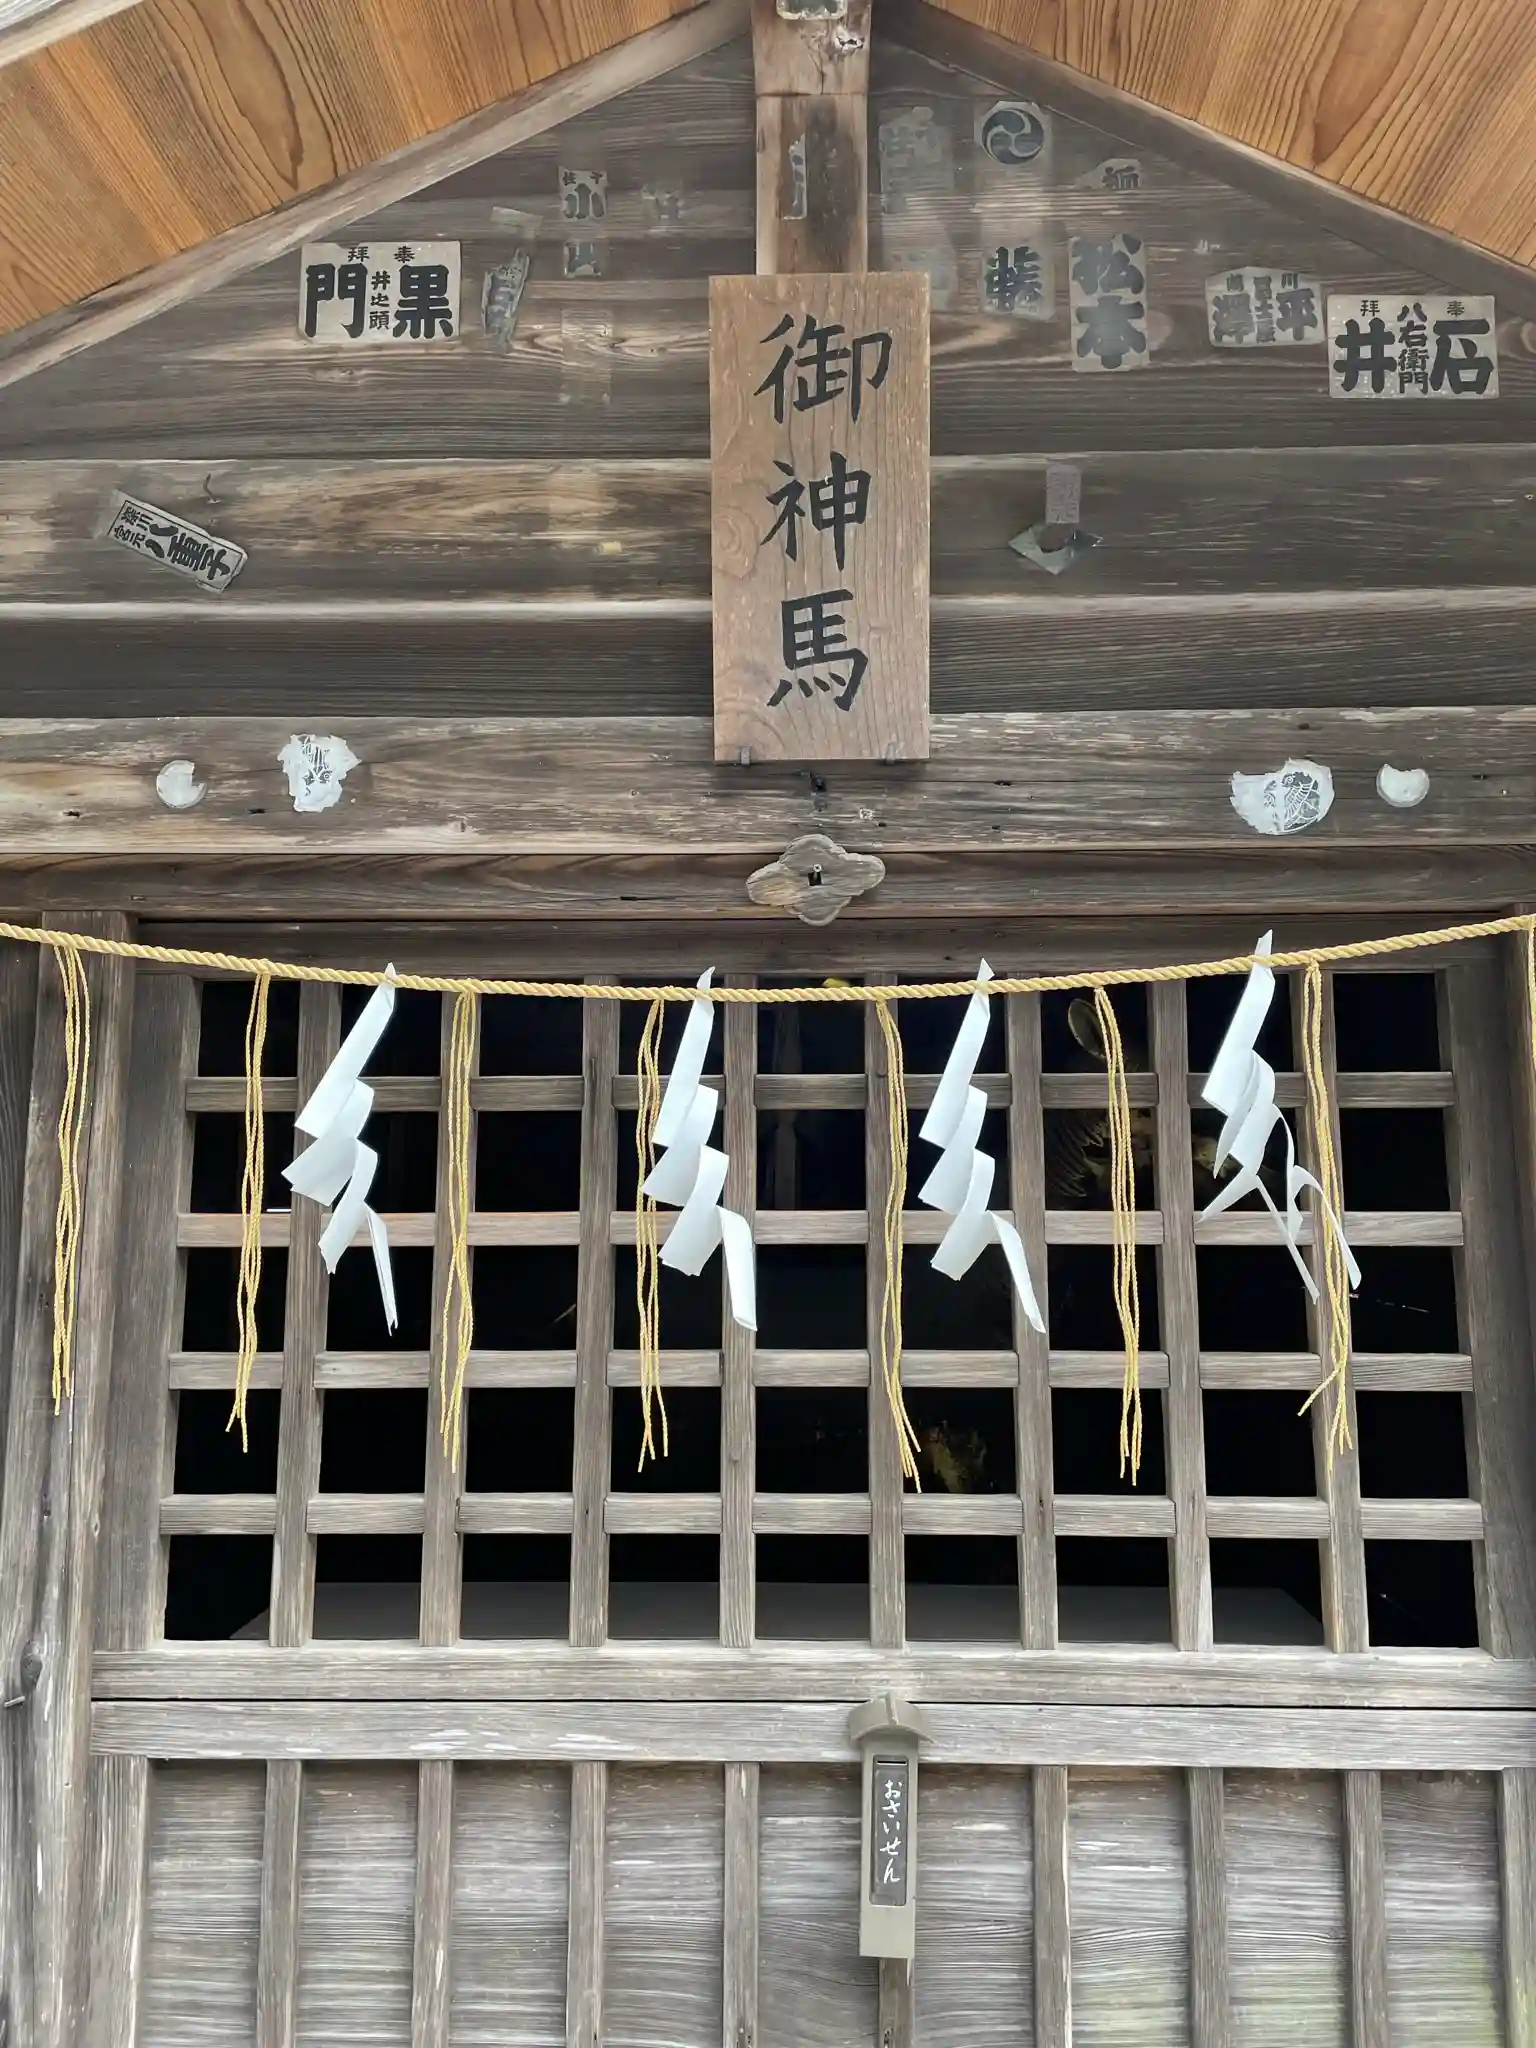 御神馬
奉拝
黒門
井之頭
小山
松本
奉拝
石井
八右衛門
平澤
深川
宮元
八重子
おさいせん